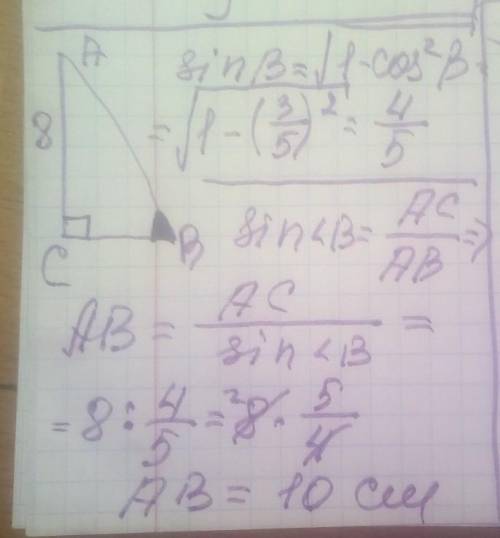 A
8
C
B
sin B = √1-cos²B =
= √1-(3/5)² = 4/5
sin∠B = AC/AB ⇒
AB = AC/sin∠B =
= 8 : 4/5 = ²8 · 5/4
AB = 10 см